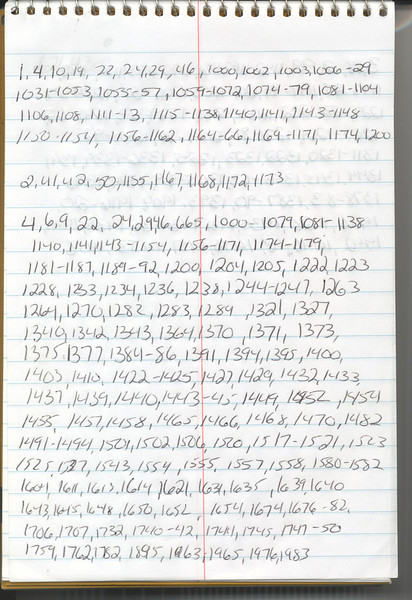 1, 4, 10, 19, 22, 24, 29, 46, 1000, 1002, 1003, 1006-29
1031-1053, 1055-57, 1059-1072, 1074-79, 1081-1104
1106, 1108, 1111-13, 1115-1138, 1140, 1141, 1143-1148
1150-1154, 1156-1162, 1164-66, 1169-1171, 1174, 1200
2, 41, 42, 50, 1155, 1167, 1168, 1172, 1173
4, 6, 9, 22, 24, 2946, 665, 1000-1079, 1081-1138
1140, 1141, 1143-1154, 1156-1171, 1174-1179,
1181-1187, 1189-92, 1200, 1204, 1205, 1222, 1223
1228, 1233, 1234, 1236, 1238, 1244-1247, 1263
1264, 1270, 1282, 1283, 1284, 1321, 1327,
1340, 1342, 1343, 1364, 1370, 1371, 1373,
1375, 1377, 1384-86, 1391, 1394, 1395, 1400,
1403, 1410, 1422-1425, 1427, 1429, 1432, 1433,
1437, 1439, 1440, 1443-45, 1449, 1452, 1454
1455, 1457, 1458, 1465, 1466, 1468, 1470, 1482
1491-1494, 1501, 1502, 1506, 1510, 1517-1521, 1523
1525, 1527, 1543, 1554, 1555, 1557, 1558, 1580-1582
1604, 1611, 1613, 1614, 1621, 1634, 1635, 1639, 1640
1643, 1645, 1648, 1650, 1652, 1654, 1674, 1676-82,
1706, 1707, 1732, 1740-42, 1744, 1745, 1747-50
1759, 1762, 1782, 1895, 1963, 1965, 1976, 1983